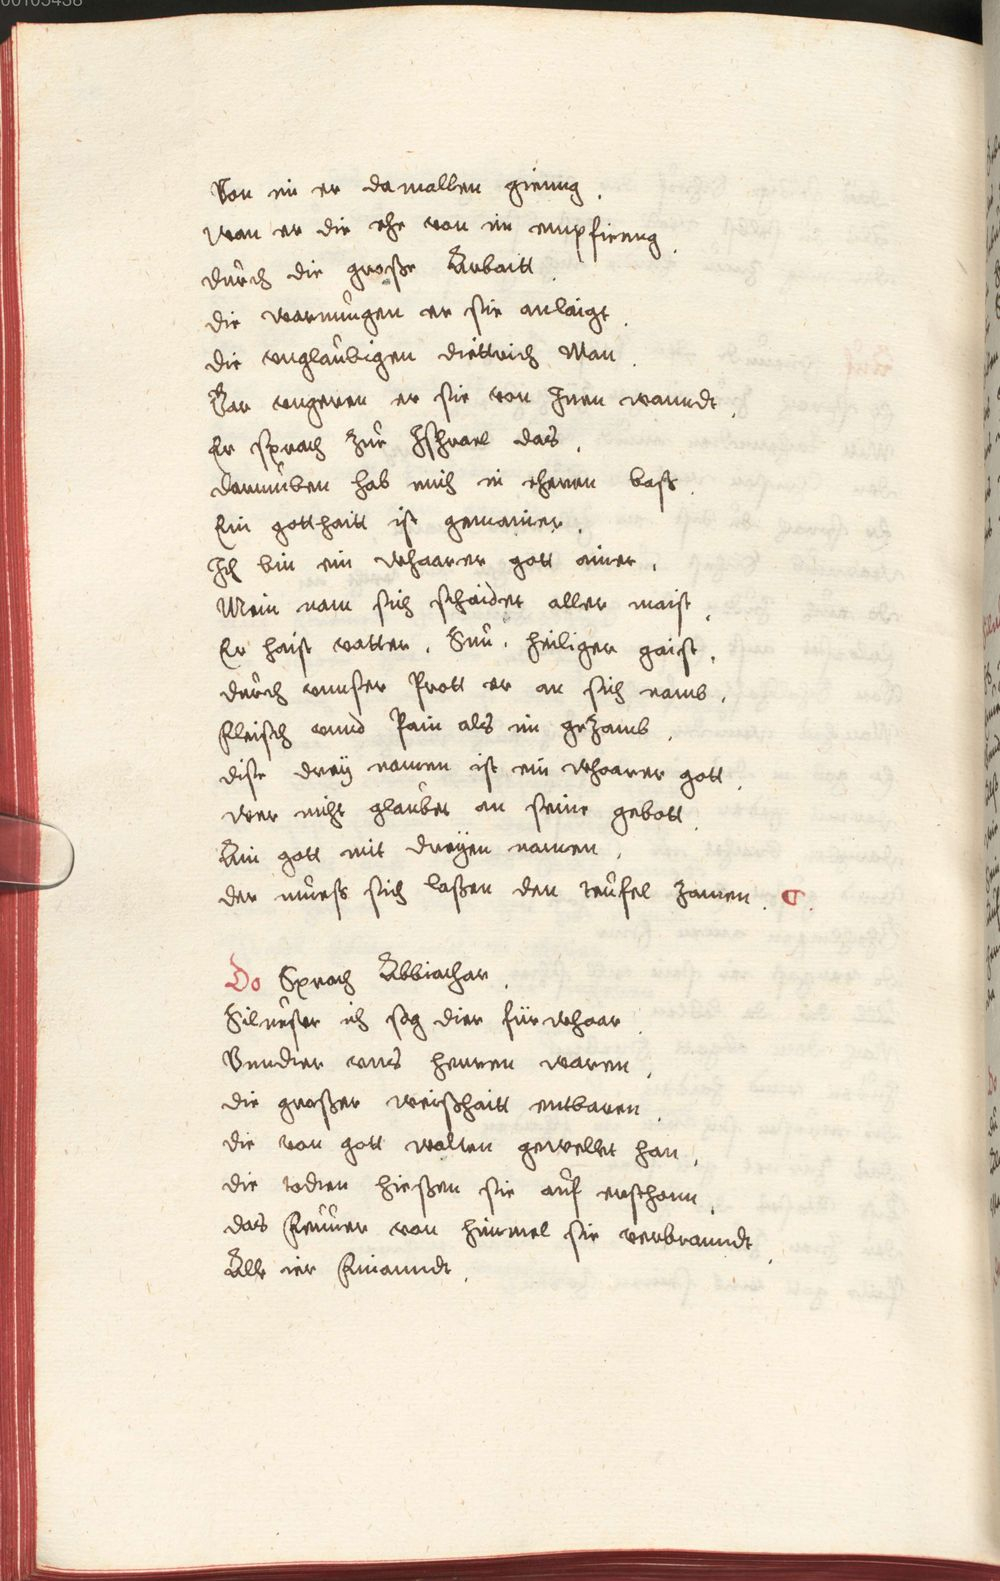 00105438
Von im er damallen gienng.
Wan er die ehe von im empfienng.
Durch die große Arbaitt.
die warnungen er sie anlaigt.
die unglaubigen diettrich Man.
Gar ungeren er sie von Inen wanndt.
Er sprach zuͦ Ischrael das.
darumben hab mich in eheren bas.
Ein gotthaitt ist gemainer.
Ich bin ein whaarer gott ainer.
Mein nam sich schaidet aller maist.
Er haist vatter. Sun. heiliger gaist.
durch unnser Prott er an sich namb.
Fleisch unnd Pain als im gezamb.
dise dreÿ namen ist ein whaarer gott.
wer nicht glaubet an seine gebott.
Ain gott mit dreÿen namen.
der muess sich laßen den teufel zamen.
Do Sprach Abbiathar.
Silvester ich sag dier für whaar.
Bender uns herren waren.
die großer weißhaitt entbaren.
die von gott wolten gewellet han.
die todten hießen sie auf erschonn.
das Feuwer von himmel sie verbranndt.
Alle ier Finanndt.